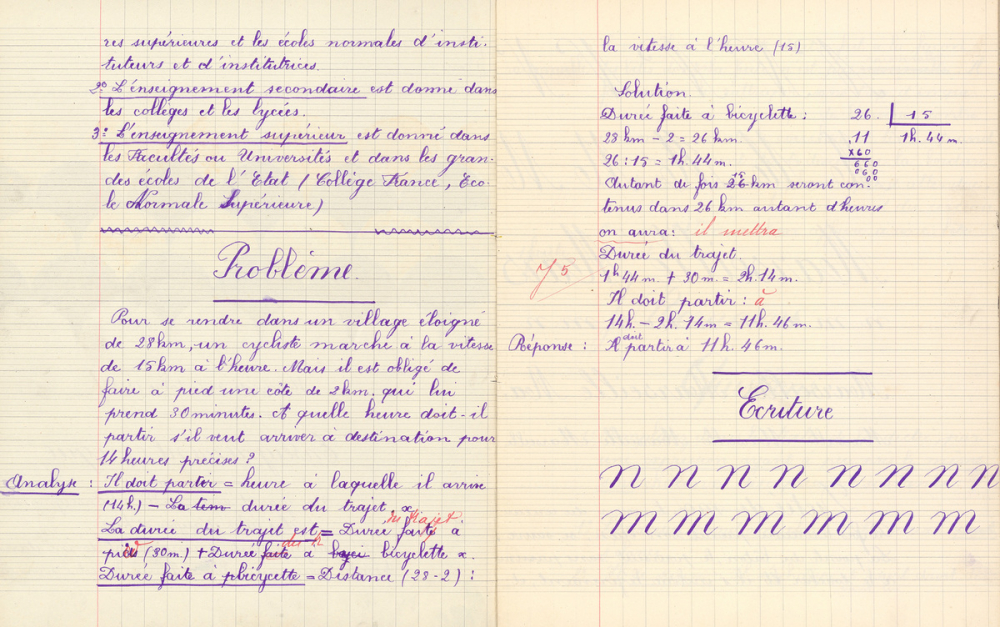 res supérieures et les écoles normales d'insti-
tuteurs et d'institutrices.
2º L'enseignement secondaire est donné dans
les collèges et les lycées.
3º L'enseignement supérieur est donné dans
les Facultés ou Universités et dans les gran-
des écoles de l'Etat (Collège France, Eco-
le Normale Supérieure)
Problème.
Pour se rendre dans un village éloigné
de 28km, un cycliste marche à la vitesse
de 15km à l'heure. Mais il est obligé de
faire à pied une côte de 2km. qui lui
prend 30 minutes. A quelle heure doit-il
partir s'il veut arriver à destination pour
14 heures précises?
Analyse : Il doit partir = heure à laquelle il arrive
(14h.) - La tem durée du trajet.
du trajet.
La durée du trajet est = Durée faite à
pied (30m.) + Durée faite à bicyclette
Durée faite à bicycette = Distance (28-2) :
la vitesse à l'heure (15)
Solution.
Durée faite à bicyclette : 26. 15
28 km - 2 = 26 km. 11 1h. 44 m.
x60
26 : 15 = 1h. 44m. 660
060
00
Autant de fois 15 km seront con-
tenus dans 26 km autant d'heures
on aura : il mettra
Durée du trajet.
75
1h 44m. + 30m = 2h. 14m.
Il doit partir : à
14h. - 2h. 14m = 11h. 46m.
Réponse : Il doit partir à 11h. 46m.
Ecriture
n n n n n n n n
m m m m m m m